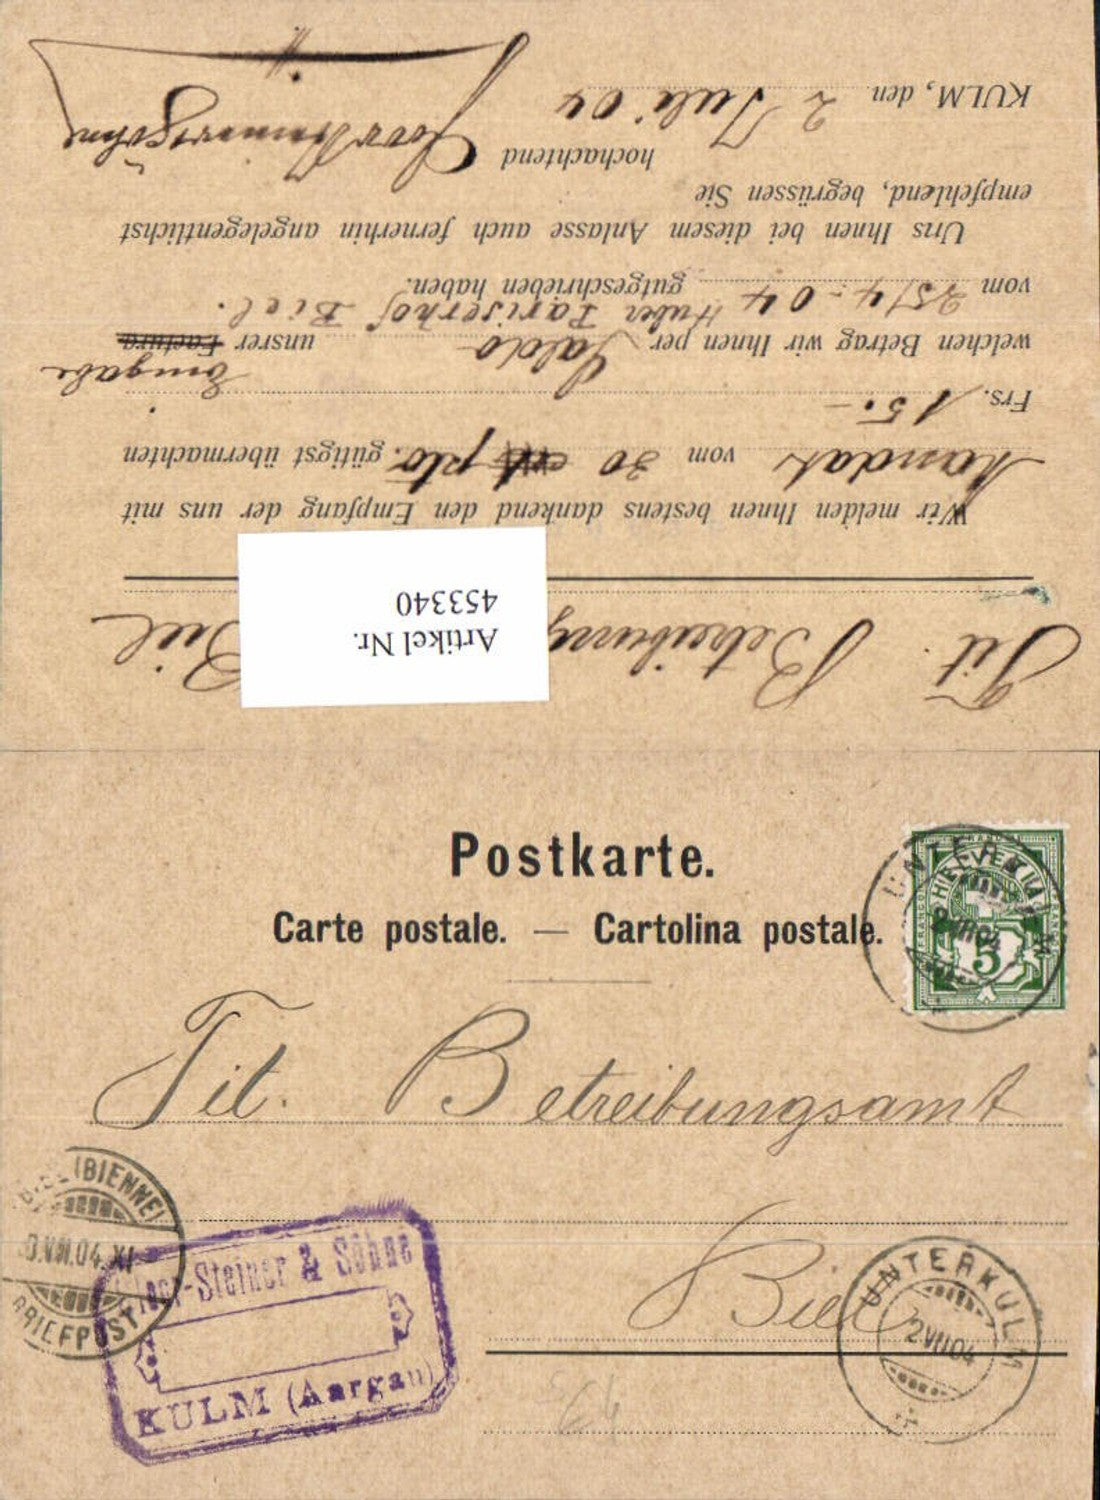 Tit. Betreibungs Biel
Artikel Nr.
453340
Wir melden Ihnen bestens dankend den Empfang der uns mit
Mandat vom 30 pto. gütigst übermachten
Frs. 15.- Eingabe
welchen Betrag wir Ihnen per Saldo unsrer Factura
vom 25/4-04 Huber Pariserhof Biel. gutgeschrieben haben.
Uns Ihnen bei diesem Anlasse auch fernerhin angelegentlichst
empfehlend, begrüssen Sie
hochachtend
KULM, den 2 Juli 04
Postkarte.
Carte postale. — Cartolina postale.
UNTERKULM
2 VII 04
HELVETIA
FRANCO
5
Tit. Betreibungsamt
Biel
BIEL (BIENNE)
VII.04. XI
BRIEFPOST
-Steiner & Söhne
KULM (Aargau)
UNTERKULM
2 VII 04
64